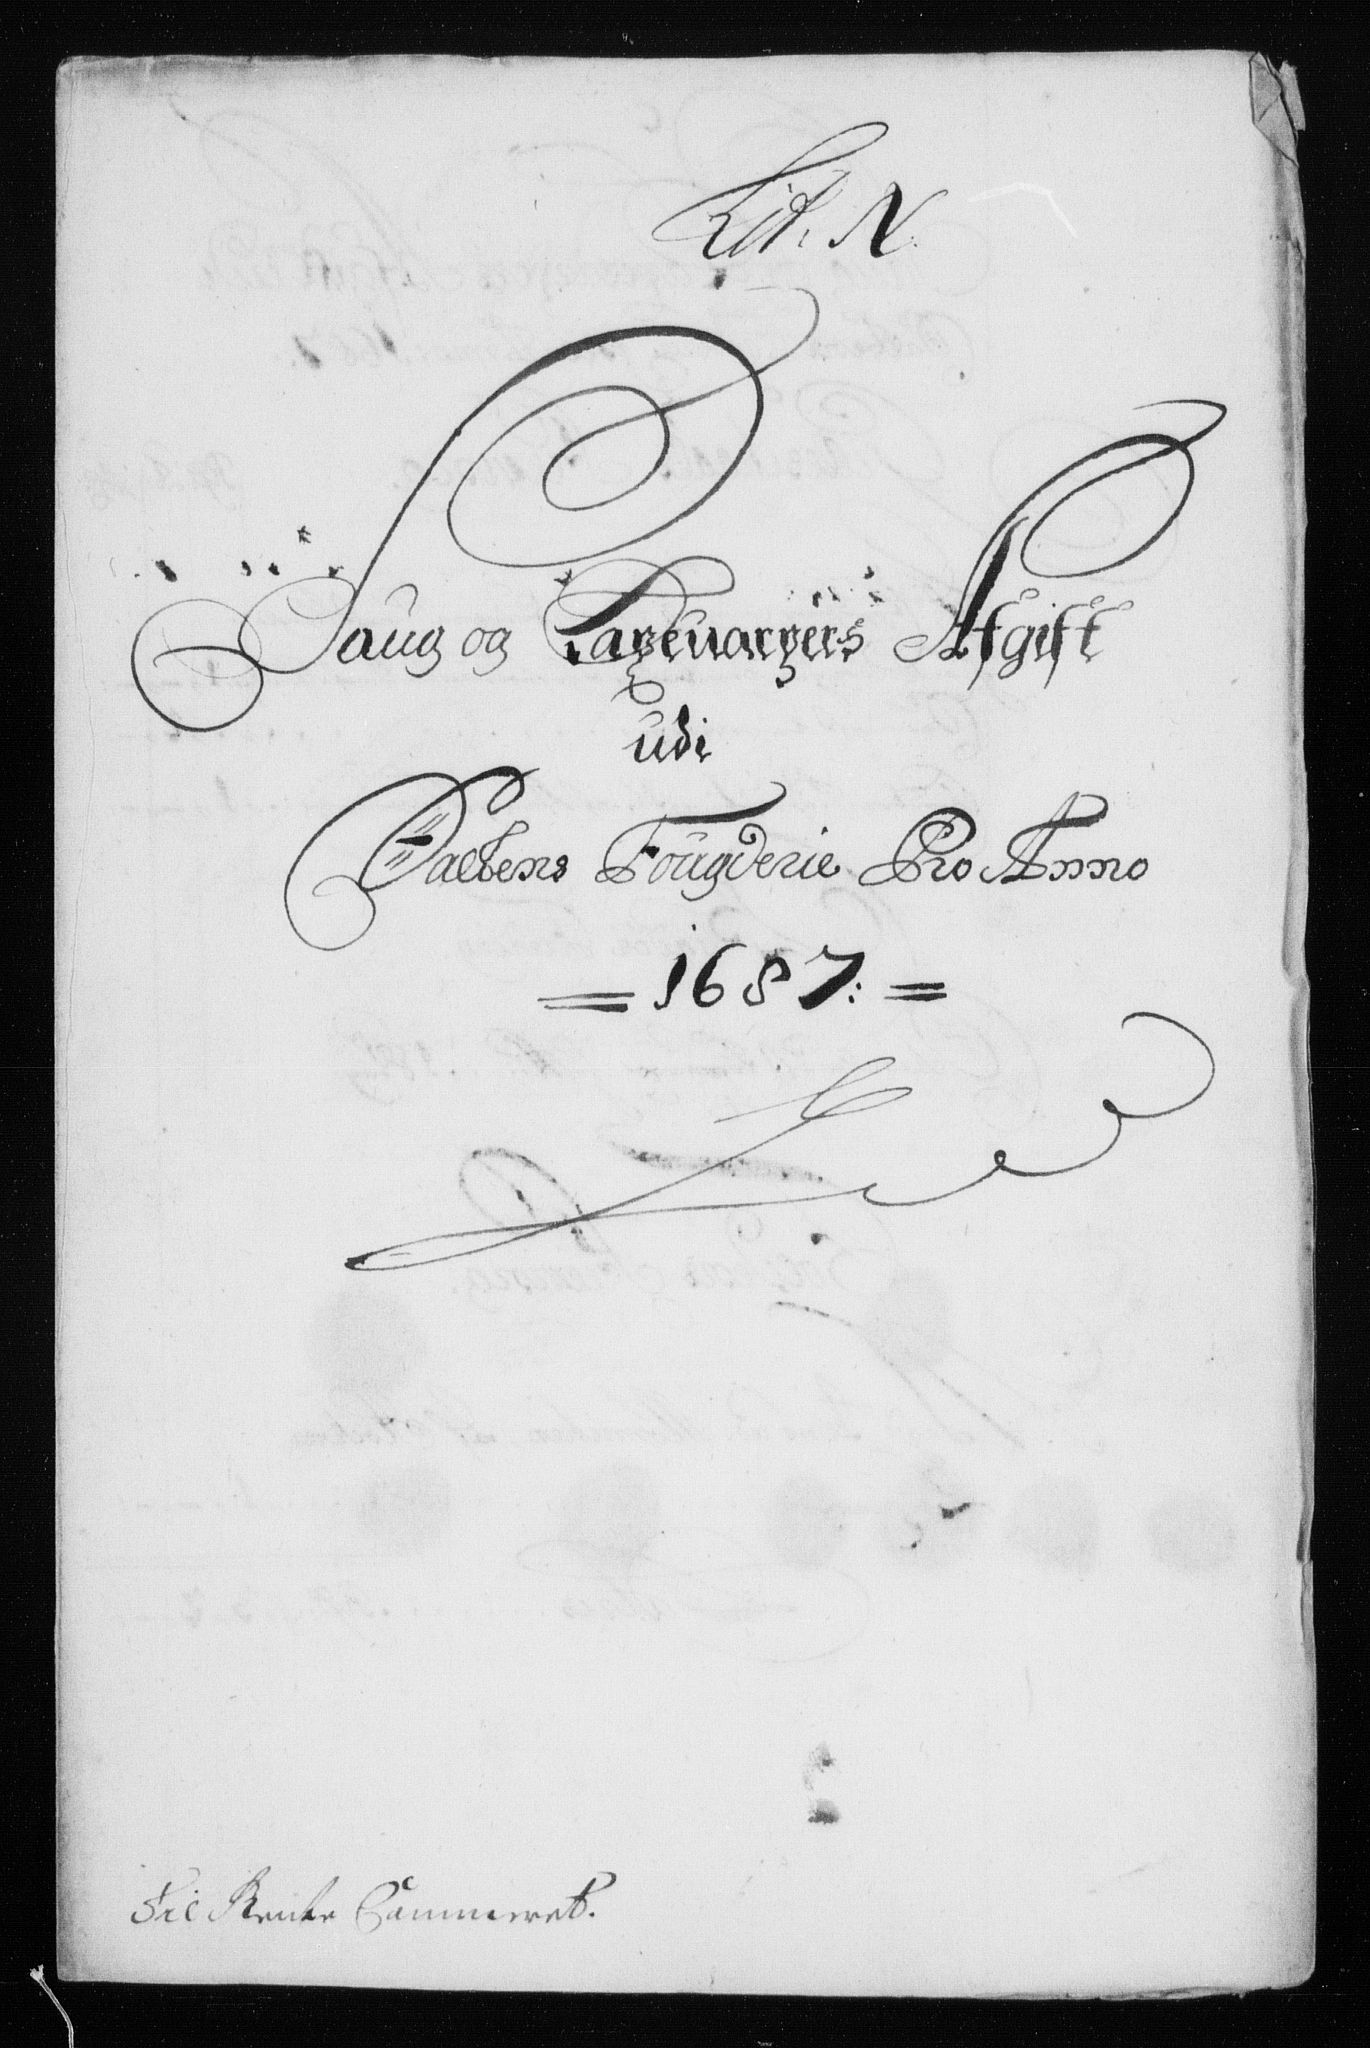 Lit. N.
Saug og Sagevaryers Afgift
udi
Saltens Fougderie Pro Anno
= 1687: =
Til Rente Cammeret.